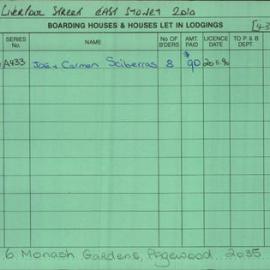 LIVERPOOL STREET EAST SYDNEY 2010
BOARDING HOUSES & HOUSES LET IN LODGINGS
SERIES No. NAME No. OF B'DERS AMT. PAID LICENCE DATE TO P & B DEPT.
A433 Joe & Carmen Sciberras 8 $90
6 Monash Gardens, Pagewood 2035